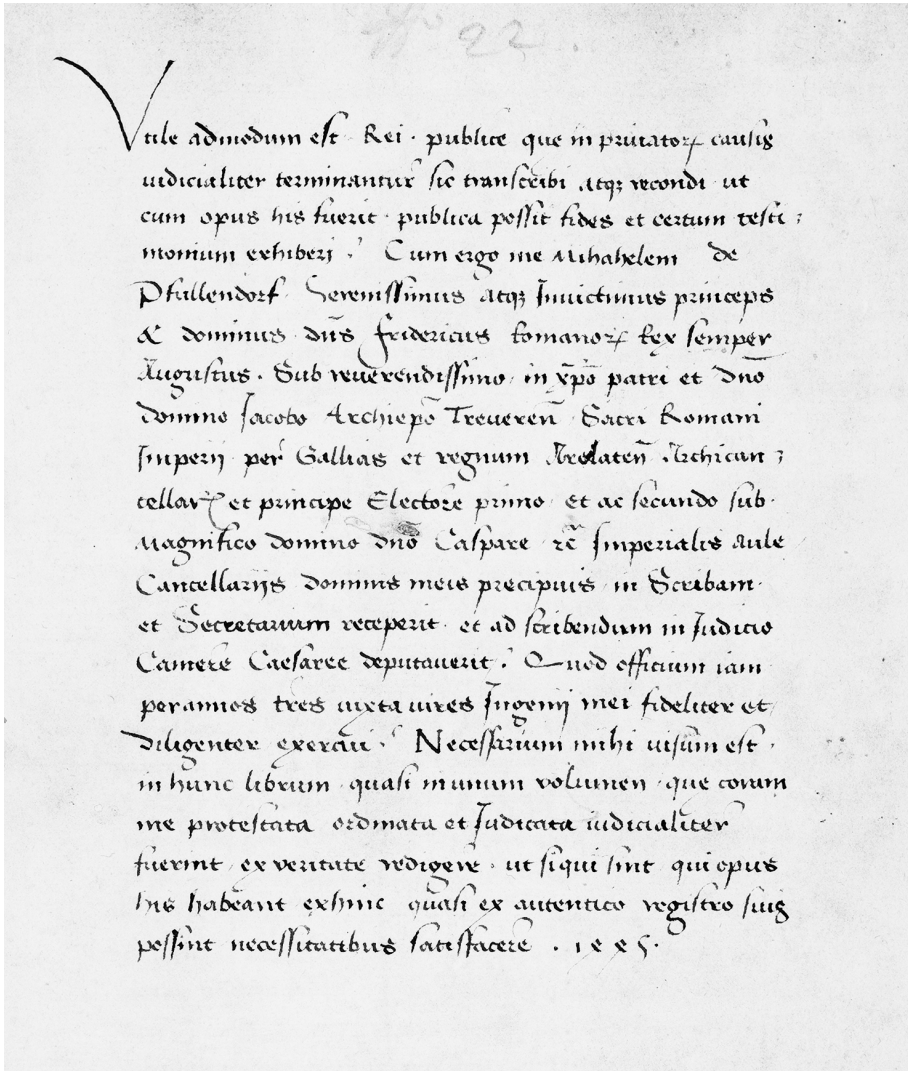 22
Vtile admodum est · Rei · publice que in priuatoꝝ causis
iudicialiter terminantur̄ sic transcribi atqꝫ recondi · ut
cum opus his fuerit · publica possit fides et certum testi ;
monium exhiberi · Cum ergo me Mihahelem de
Pfullendorf · Serenissimus atqꝫ Inuictimus princeps
& dominus dn̄s fridericus Romanoꝝ Rex semper
Augustus · Sub reuerendissimo · in xp̄o patri et dn̄o
domino Jacobo Archiep̄o Treueren̄ · Sacri Romani
Imperij per Gallias et regnum Arelaten̄ Archican ;
cellar et principe Electore primo · et ac secundo sub ·
Magnifico domino dn̄o Caspare · rc̄ Imperialis Aule
Cancellarijs dominis meis precipuis · in Scribam ·
et Secretarium receperit · et ad scribendum in Judicio
Camere Caesaree deputauerit · Quod officium iam
per annos tres iuxta uires Ingenij mei fideliter et
diligenter exercui · Necessarium mihi uisum est ·
in hunc librum · quasi in unum volumen · que coram
me protestata ordinata et Judicata iudicialiter
fuerint · ex veritate redigere · ut siqui sint · qui opus
his habeant exhinc quasi ex autentico registro suis
possint necessitatibus satisfacere ·